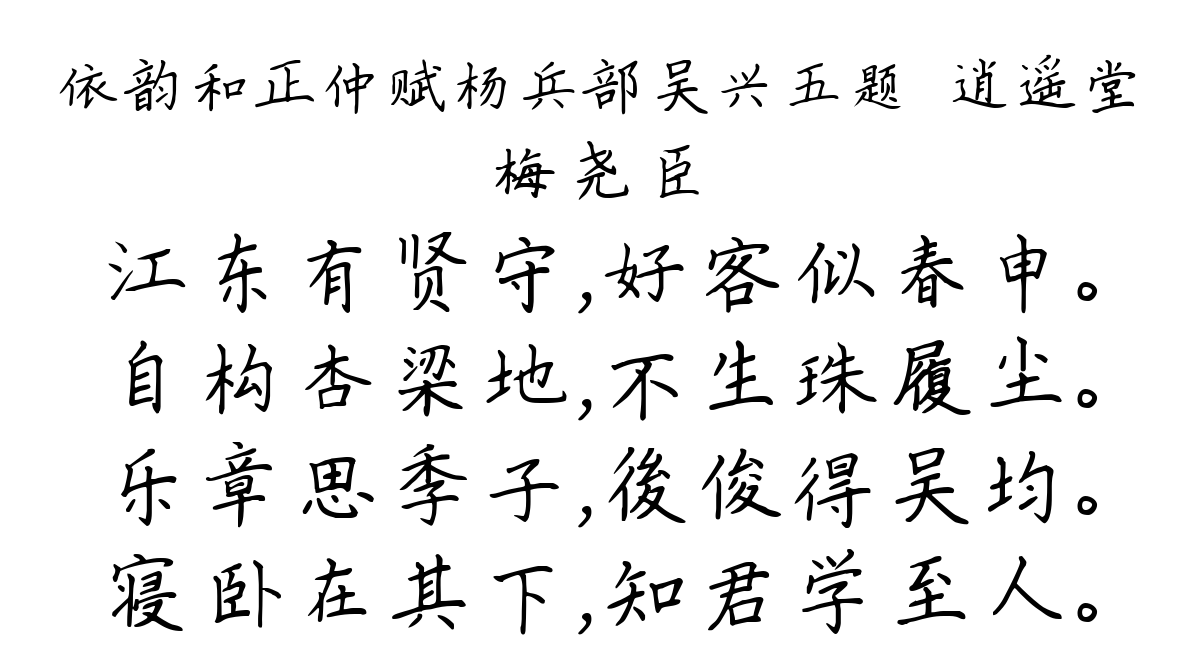 依韵和正仲赋杨兵部吴兴五题 逍遥堂
梅尧臣
江东有贤守,好客似春申。
自构杏梁地,不生珠履尘。
乐章思季子,後俊得吴均。
寝卧在其下,知君学至人。